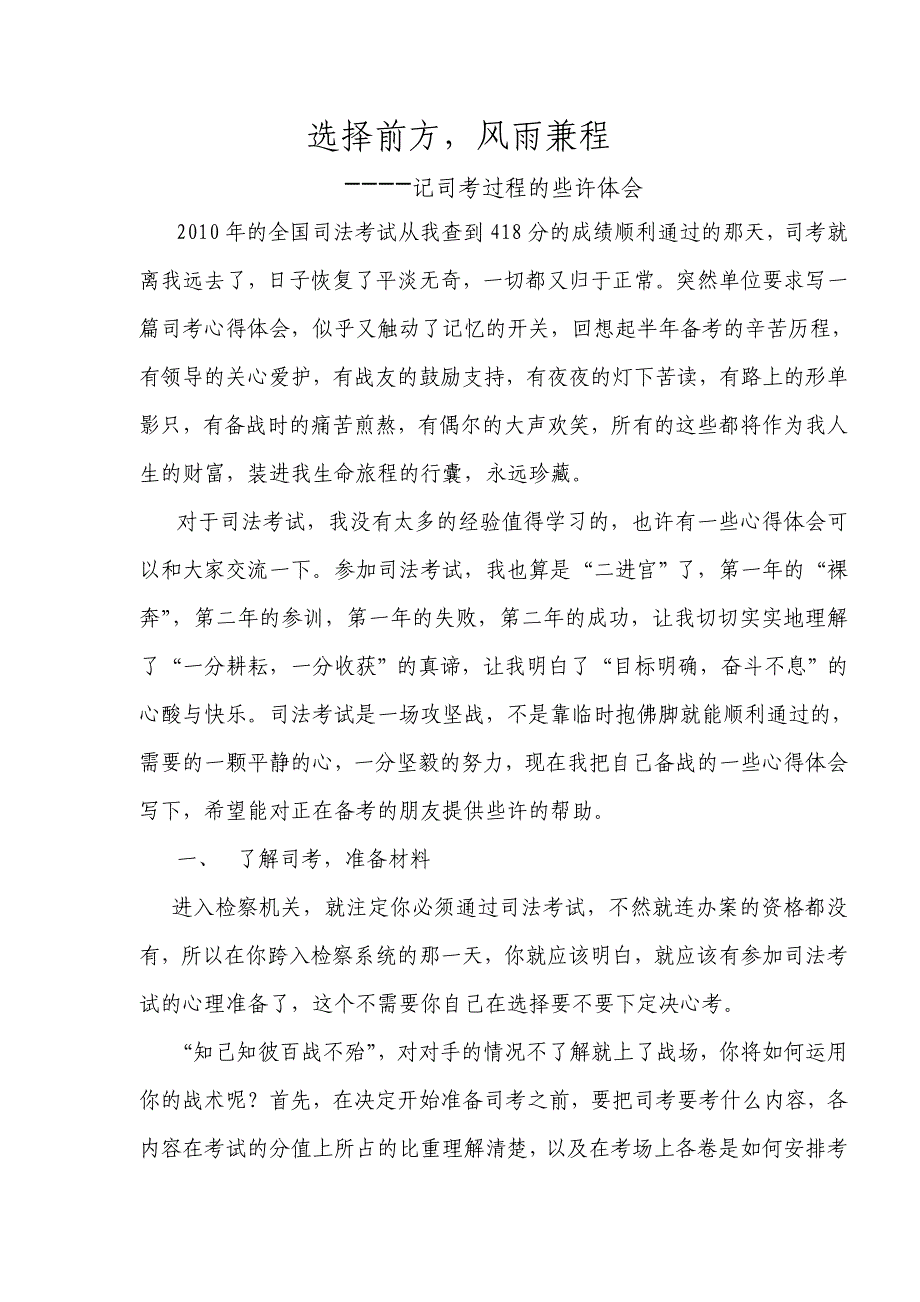 选择前方，风雨兼程
————记司考过程的些许体会
2010 年的全国司法考试从我查到 418 分的成绩顺利通过的那天，司考就
离我远去了，日子恢复了平淡无奇，一切都又归于正常。突然单位要求写一
篇司考心得体会，似乎又触动了记忆的开关，回想起半年备考的辛苦历程，
有领导的关心爱护，有战友的鼓励支持，有夜夜的灯下苦读，有路上的形单
影只，有备战时的痛苦煎熬，有偶尔的大声欢笑，所有的这些都将作为我人
生的财富，装进我生命旅程的行囊，永远珍藏。
对于司法考试，我没有太多的经验值得学习的，也许有一些心得体会可
以和大家交流一下。参加司法考试，我也算是“二进宫”了，第一年的“裸
奔”，第二年的参训，第一年的失败，第二年的成功，让我切切实实地理解
了“一分耕耘，一分收获”的真谛，让我明白了“目标明确，奋斗不息”的
心酸与快乐。司法考试是一场攻坚战，不是靠临时抱佛脚就能顺利通过的，
需要的一颗平静的心，一分坚毅的努力，现在我把自己备战的一些心得体会
写下，希望能对正在备考的朋友提供些许的帮助。
一、 了解司考，准备材料
进入检察机关，就注定你必须通过司法考试，不然就连办案的资格都没
有，所以在你跨入检察系统的那一天，你就应该明白，就应该有参加司法考
试的心理准备了，这个不需要你自己在选择要不要下定决心考。
“知己知彼百战不殆”，对对手的情况不了解就上了战场，你将如何运用
你的战术呢？首先，在决定开始准备司考之前，要把司考要考什么内容，各
内容在考试的分值上所占的比重理解清楚，以及在考场上各卷是如何安排考